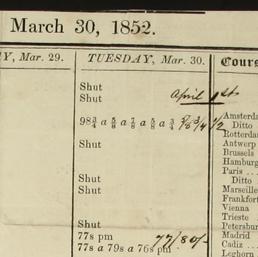 March 30, 1852.
Y, Mar. 29.
TUESDAY, Mar. 30.
Cours
Shut
Shut
April 1st
98¾ a ⅝ a ⅞ a ⅝ a ¾
Shut
Shut
Shut
Shut
77s pm 77/80/-
77s a 79s a 76s pm
Amsterda
Ditto
Rotterda
Antwerp
Brussels
Hamburg
Paris ...
Ditto
Marseille
Frankfor
Vienna
Trieste
Petersbu
Madrid
Cadiz ...
Leghorn